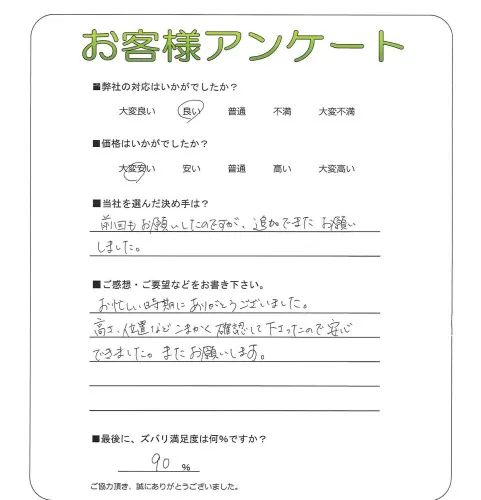 お客様アンケート
■弊社の対応はいかがでしたか？
大変良い 良い 普通 不満 大変不満
■価格はいかがでしたか？
大変安い 安い 普通 高い 大変高い
■当社を選んだ決め手は？
前回もお願いしたのですが、追加でまたお願い
しました。
■ご感想・ご要望などをお書き下さい。
お忙しい時期にありがとうございました。
高さ、位置などこまかく確認して下さったので安心
できました。またお願いします。
■最後に、ズバリ満足度は何％ですか？
90 %
ご協力頂き、誠にありがとうございました。